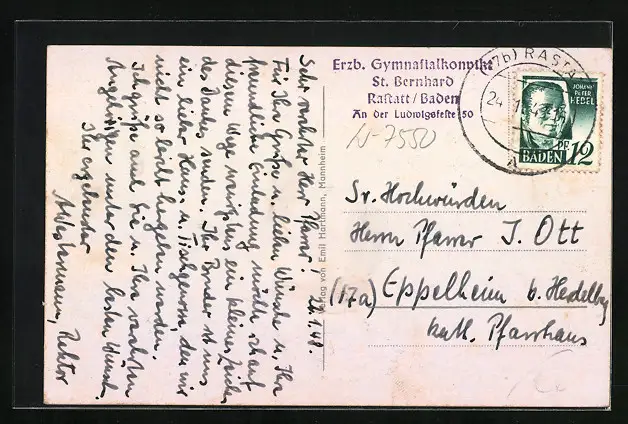 Erzb. Gymnasialkonvikt
St. Bernhard
Rastatt/Baden
An der Ludwigsfeste 50
W-7550
(17b) RASTA
24
JOHANN
PETER
HEBEL
PF
BADEN 12
Sr. Hochwürden
Herrn Pfarrer J. Ott
(17a) Eppelheim b. Heidelbg
kath. Pfarrhaus
Verlag von Emil Hartmann, Mannheim
22.1.49.
Sehr verehrter Herr Pfarrer!
Für Ihre Grüße u. lieben Wünsche u. Ihre
freundliche Einladung möchte ich auf
diesem Wege wenigstens ein kleines Zeichen
des Dankes senden. Ihr Bruder ist uns
ein lieber Haus- u. Tischgenosse, der mir
nicht so leicht hergeben werden.
Ich grüße auch Sie u. Ihre nächsten
Angehörigen unter den besten Wünschen.
Ihr ergebenster
Rektor